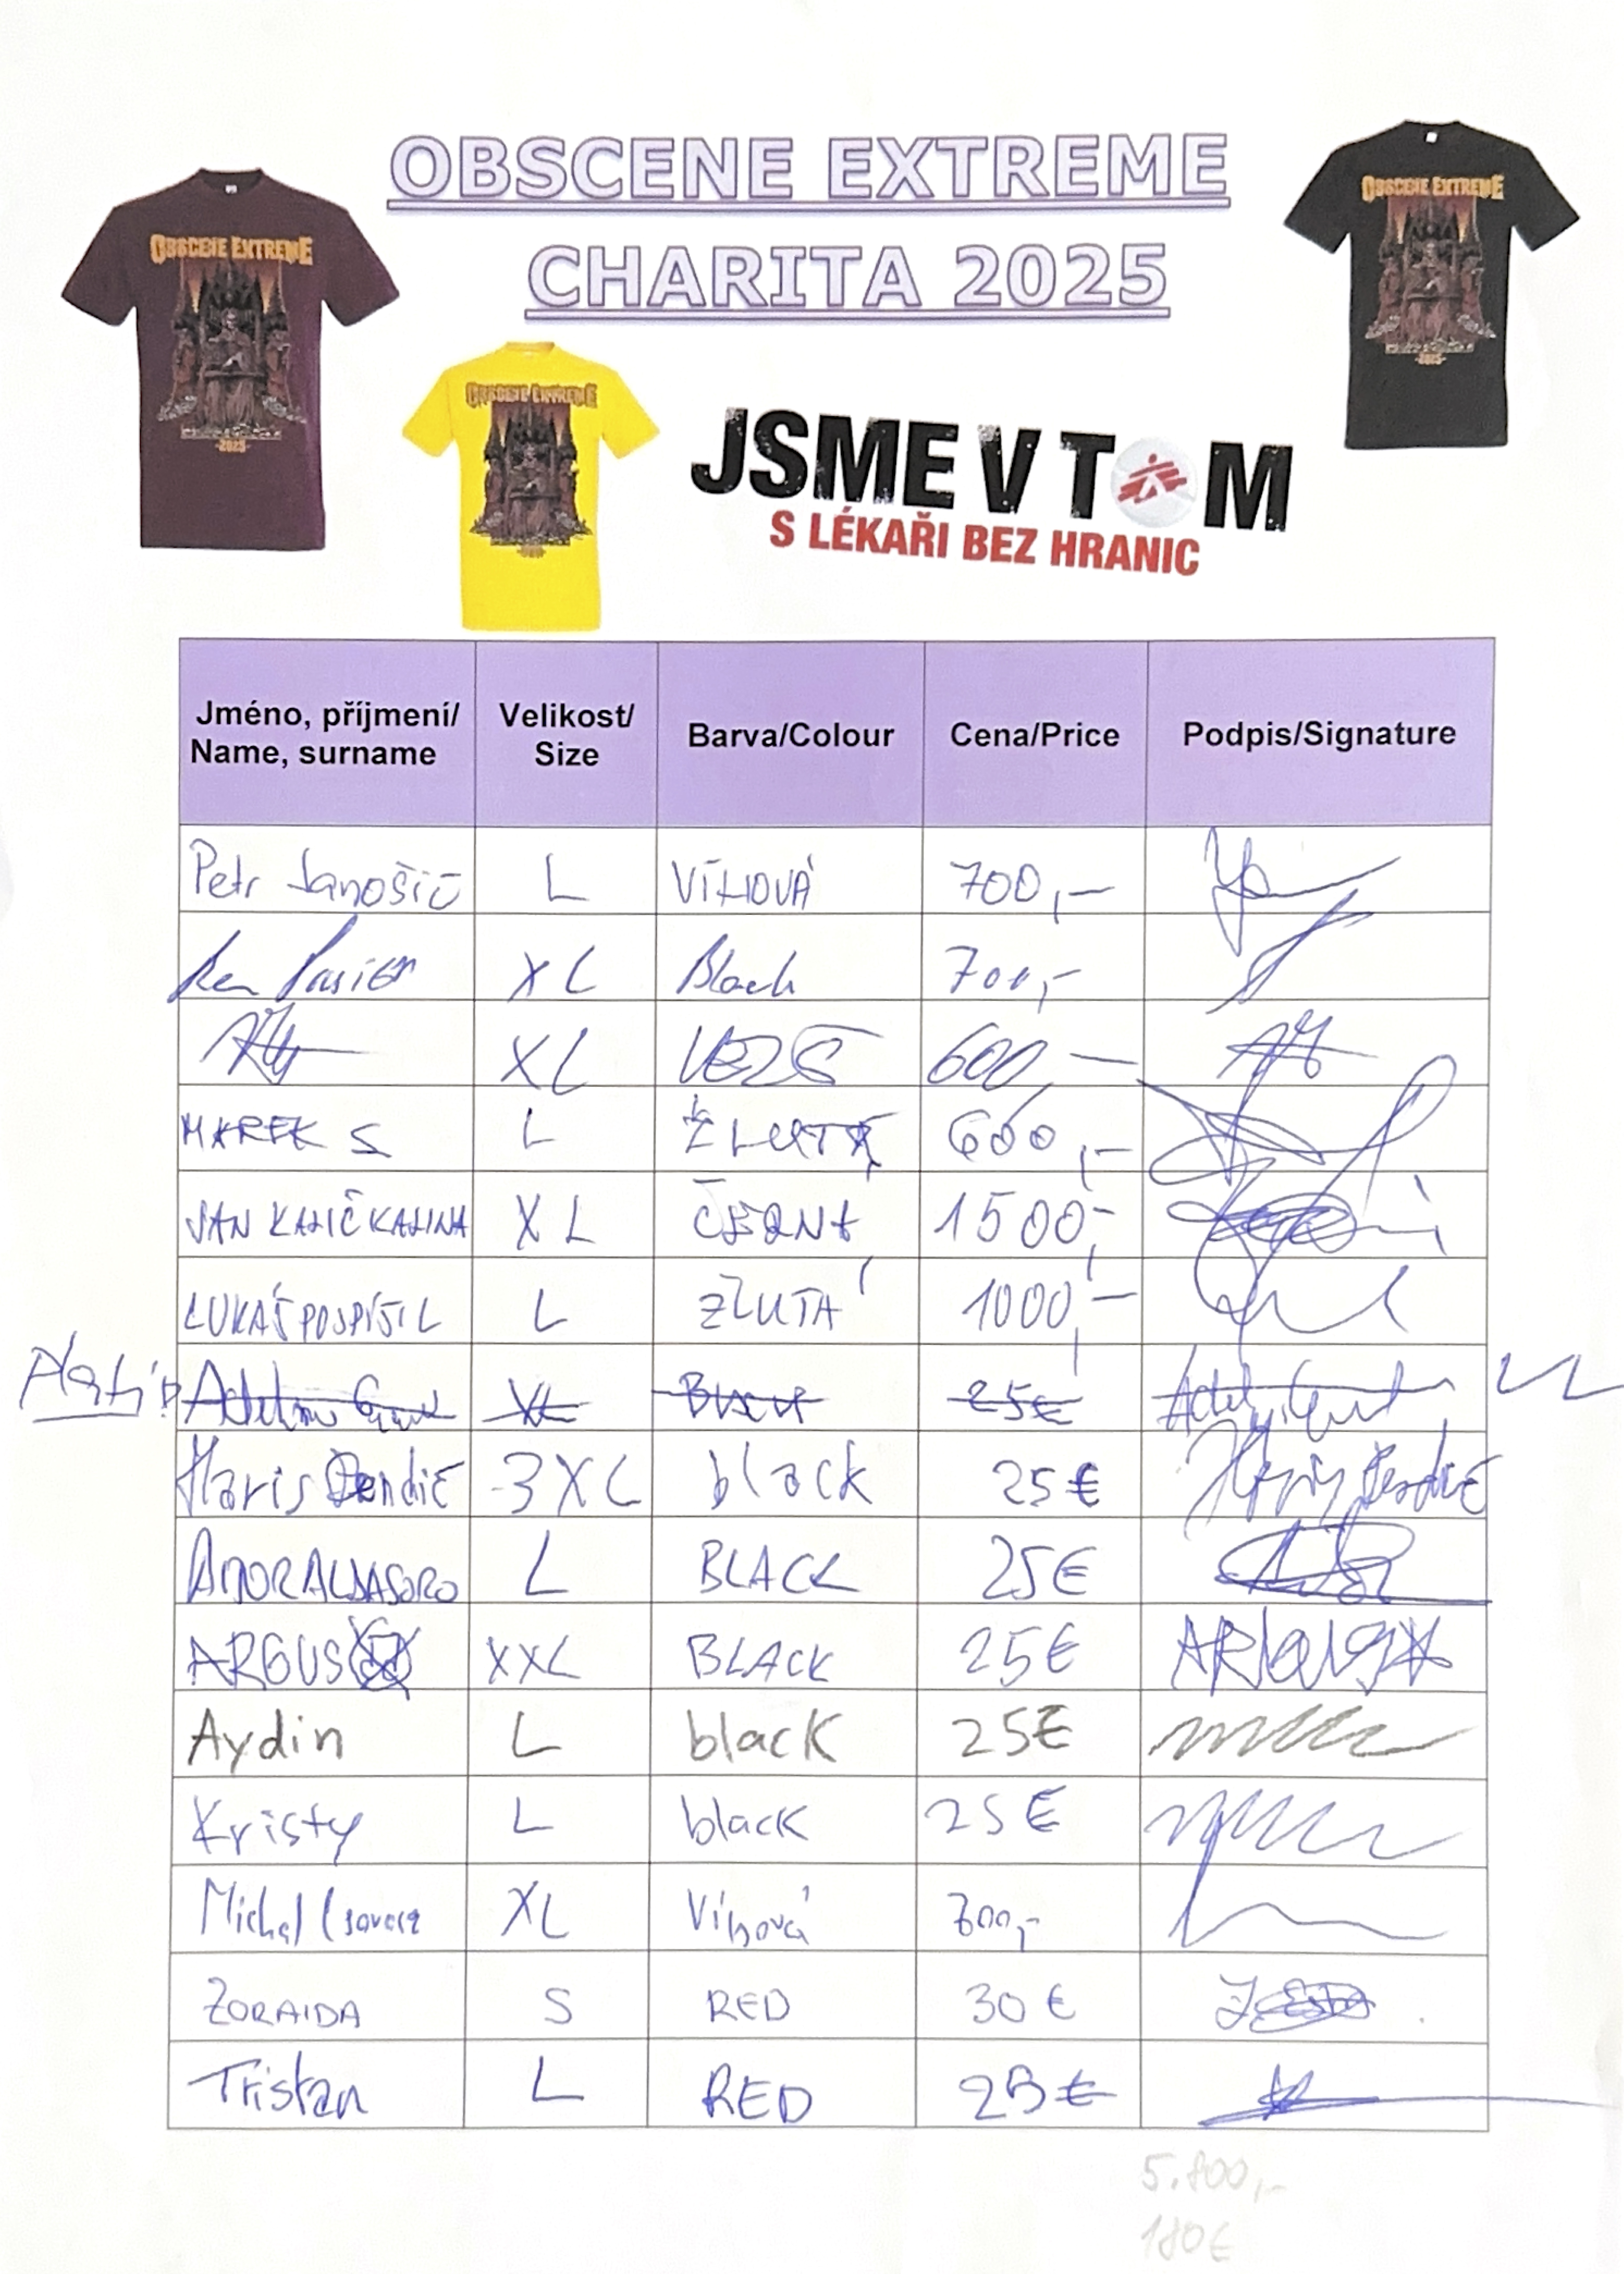 OBSCENE EXTREME
CHARITA 2025
OBSCENE EXTREME
-2025-
OBSCENE EXTREME
OBSCENE EXTREME
-2025-
JSME V TOM
S LÉKAŘI BEZ HRANIC
Jméno, příjmení/ Name, surname Velikost/ Size Barva/Colour Cena/Price Podpis/Signature
Petr Janošič L VÍNOVÁ 700,-
XL Black 700,-
XL 600,-
MAREK S L ŽLUTÁ 600,-
JAN KALIČ KALINA XL ČERNÁ 1500,-
LUKÁŠ POSPÍŠIL L ŽLUTÁ 1000,-
Platí? XL Black 25€
Haris Dendić 3XL black 25€
AITOR ALDASORO L BLACK 25€
ARGUS XXL BLACK 25€
Aydin L black 25€
Kristy L black 25€
Michal XL Vínová 700,-
ZORAIDA S RED 30€
Tristan L RED 25€
5.800,-
180€